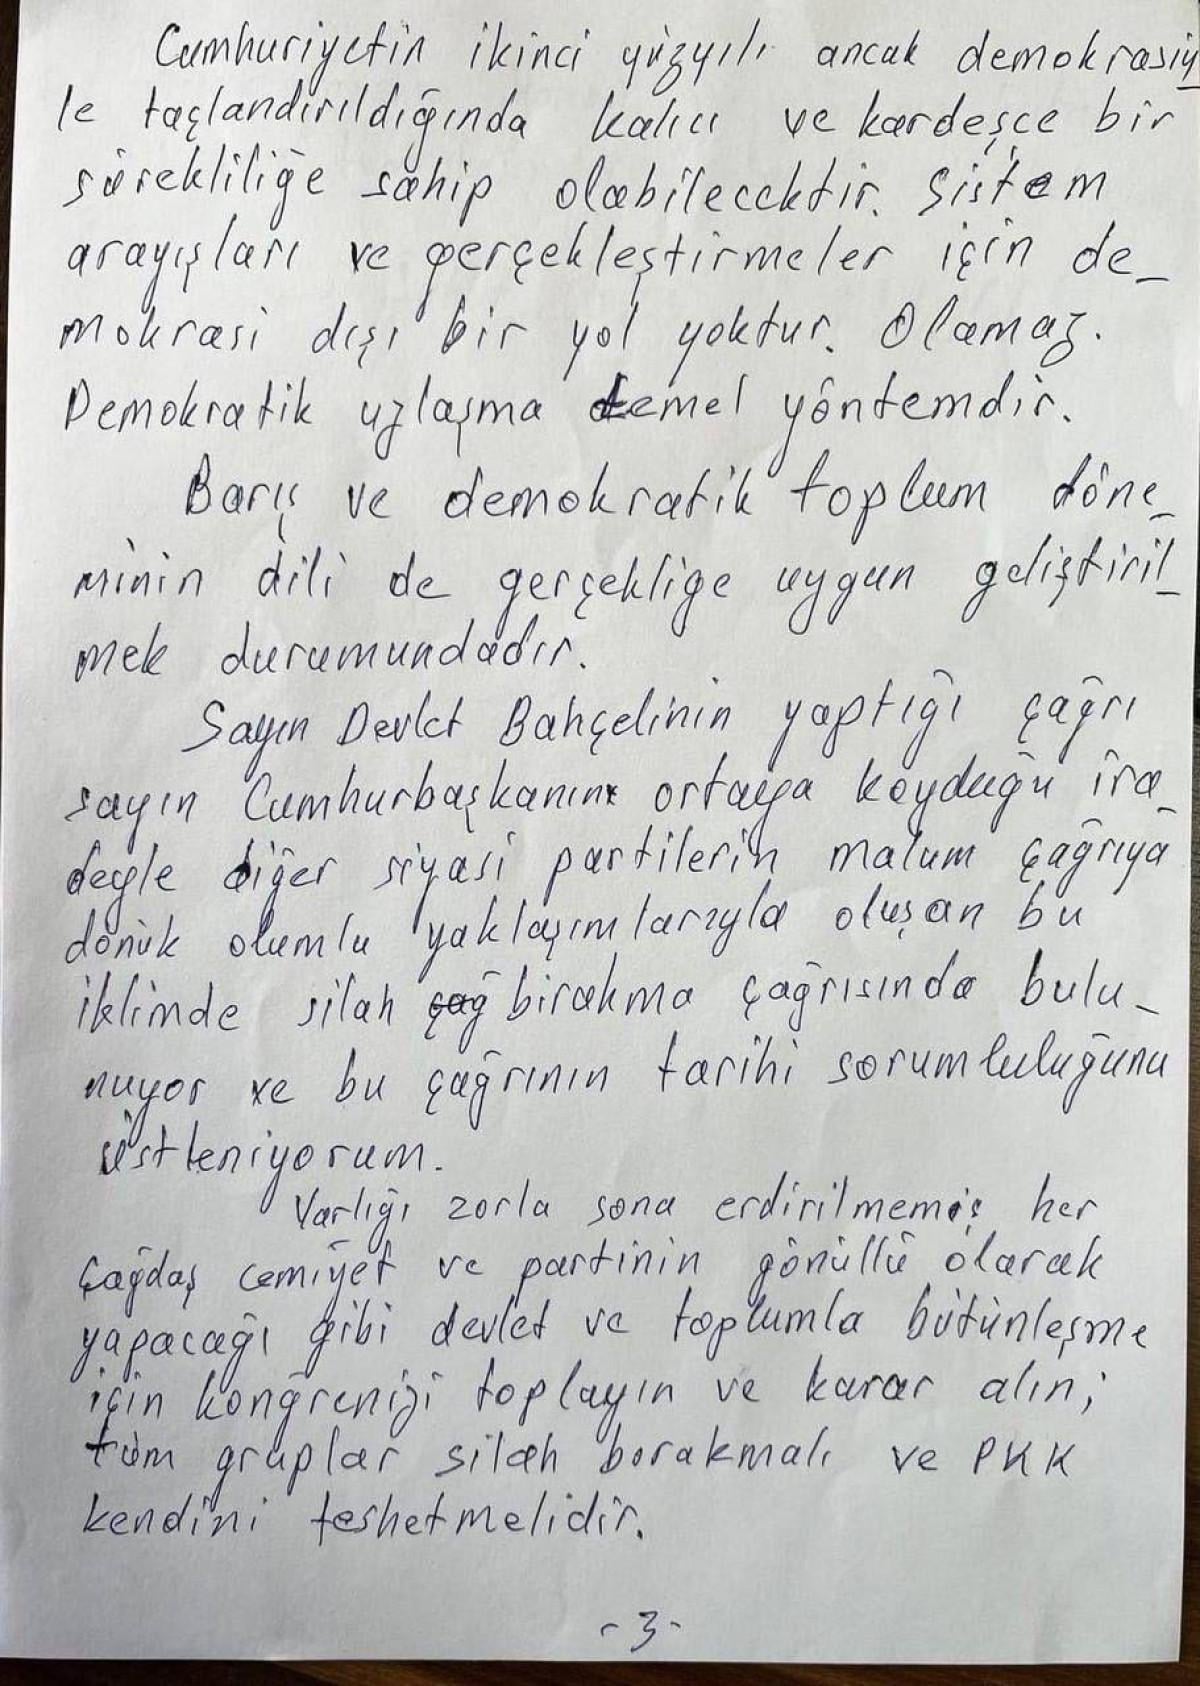 Cumhuriyetin ikinci yüzyılı ancak demokrasiy_
le taçlandırıldığında kalıcı ve kardeşçe bir
sürekliliğe sahip olabilecektir. Sistem
arayışları ve gerçekleştirmeler için de_
mokrasi dışı bir yol yoktur. Olamaz.
Demokratik uzlaşma temel yöntemdir.
Barış ve demokratik toplum döne_
minin dili de gerçekliğe uygun geliştiril_
mek durumundadır.
Sayın Devlet Bahçelinin yaptığı çağrı
sayın Cumhurbaşkanının ortaya koyduğu ira_
deyle diğer siyasi partilerin malum çağrıya
dönük olumlu yaklaşımlarıyla oluşan bu
iklimde silah çağ bırakma çağrısında bulu_
nuyor ve bu çağrının tarihi sorumluluğunu
üstleniyorum.
Varlığı zorla sona erdirilmemiş her
çağdaş cemiyet ve partinin gönüllü olarak
yapacağı gibi devlet ve toplumla bütünleşme
için kongrenizi toplayın ve karar alın;
tüm gruplar silah bırakmalı ve PKK
kendini feshetmelidir.
-3-